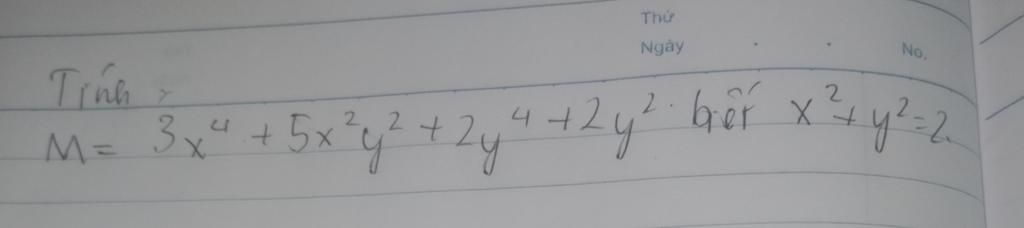 Thứ
Ngày . . No.
Tính :
M = 3x⁴ + 5x²y² + 2y⁴ + 2y². biết x² + y² = 2.